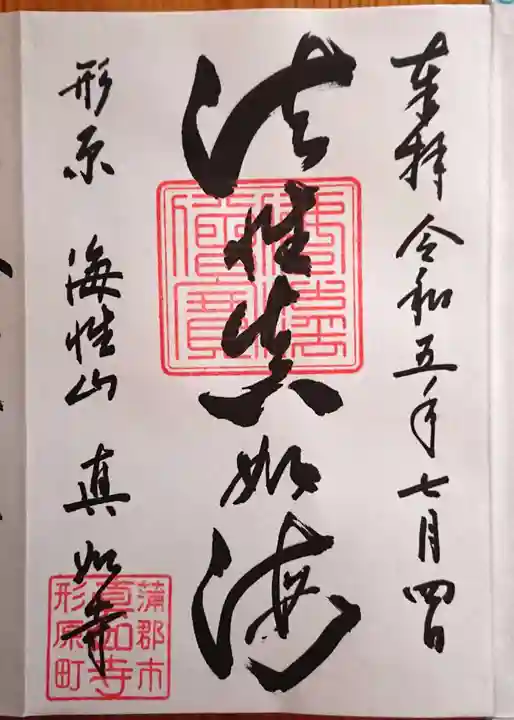 奉拝 令和五年七月四日
法性真如海
佛法僧寳
形原 海性山 真如寺
蒲郡市
真如寺
形原町